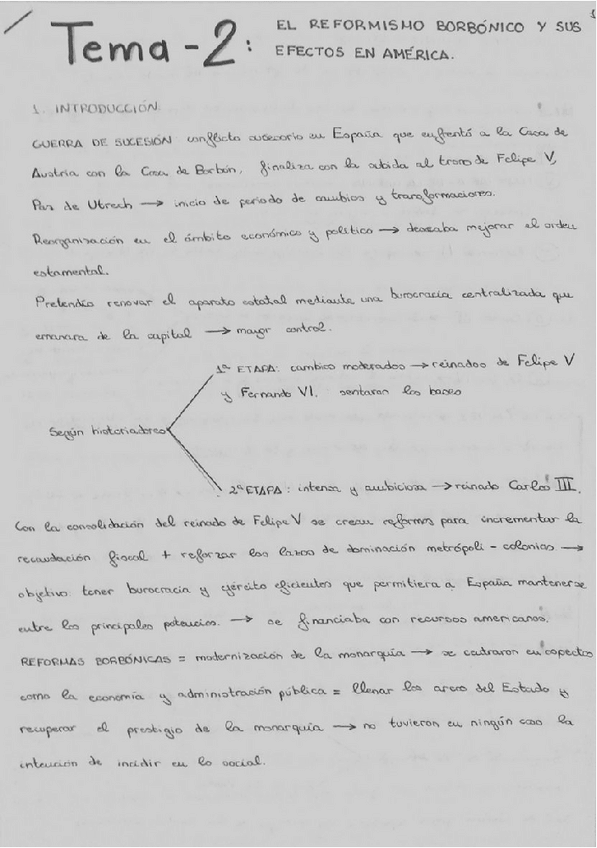 1
Tema-2: EL REFORMISMO BORBÓNICO Y SUS
EFECTOS EN AMÉRICA.
1. INTRODUCCIÓN
GUERRA DE SUCESIÓN conflicto sucesorio en España que enfrentó a la Casa de
Austria con la Casa de Borbón, finaliza con la subida al trono de Felipe V,
Paz de Utrech → inicio de periodo de cambios y transformaciones.
Reorganización en el ámbito económico y político → deseaba mejorar el orden
estamental.
Pretendió renovar el aparato estatal mediante una burocracia centralizada que
emanara de la capital → mayor control.
Según historiadores
1ª ETAPA: cambios moderados → reinados de Felipe V
y Fernando VI. sentaran las bases
2ª ETAPA: intensa y ambiciosa → reinado Carlos III.
Con la consolidación del reinado de Felipe V se crean reformas para incrementar la
recaudación fiscal + reforzar los lazos de dominación metrópoli - colonias →
objetivo tener burocracia y ejército eficientes que permitiera a España mantenerse
entre las principales potencias. → se financiaba con recursos americanos.
REFORMAS BORBÓNICAS = modernización de la monarquía → se cadraron en aspectos
como la economía y administración pública = llenar las arcas del Estado y
recuperar el prestigio de la monarquía → no tuvieron en ningún caso la
intención de incidir en lo social.